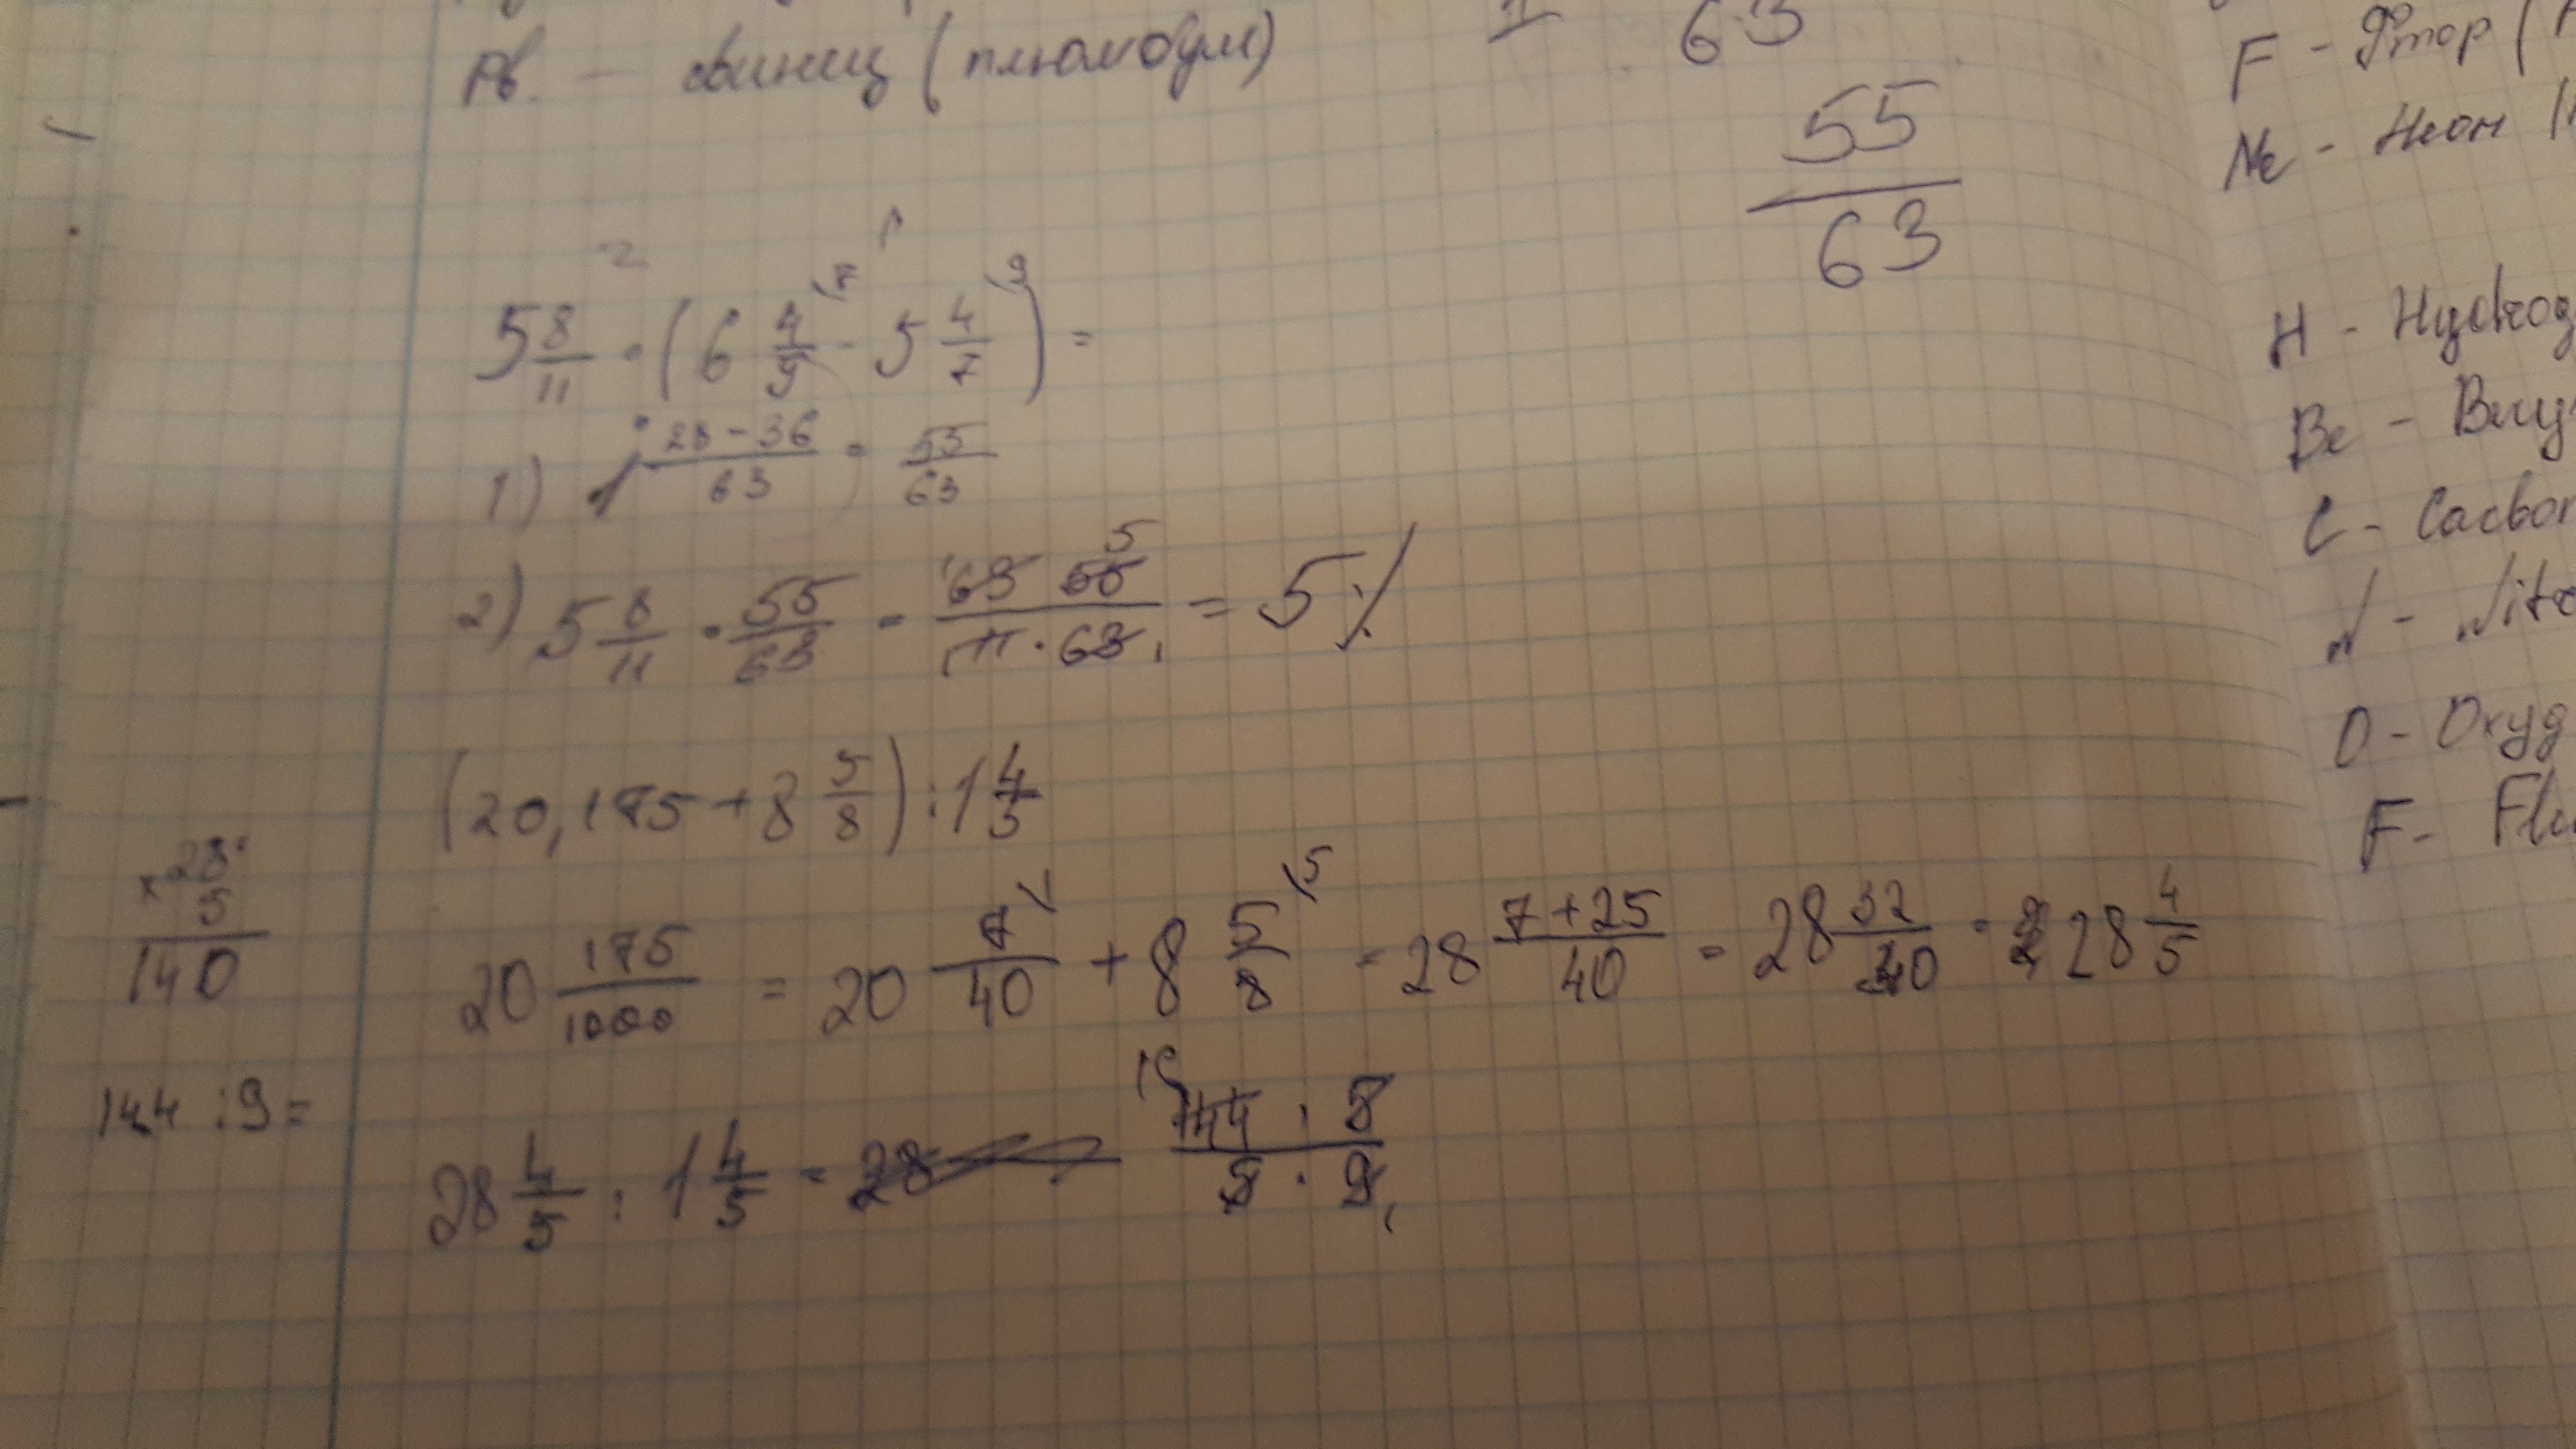 Pb - свинец (плюмбум)
63
55/63
5 8/11 · (6 4/9 \7 - 5 4/7 \9) =
1) 1 (28-36)/63 = 55/63
2) 5 8/11 · 55/63 = (63 55)/(11·63) = 5
(20,175+8 5/8) : 1 4/5
×28
5
140
20 175/1000 = 20 7/40 + 8 5/8 \5 = 28 (7+25)/40 = 28 32/40 = 28 4/5
144 : 9 =
28 4/5 : 1 4/5 = 28 (144 · 5)/(5 · 9)
F - Фтор (
Ne - Неон (
H - Hydrog
Be -
C - Carbon
N - Nitr
O - Oxyg
F - Flu